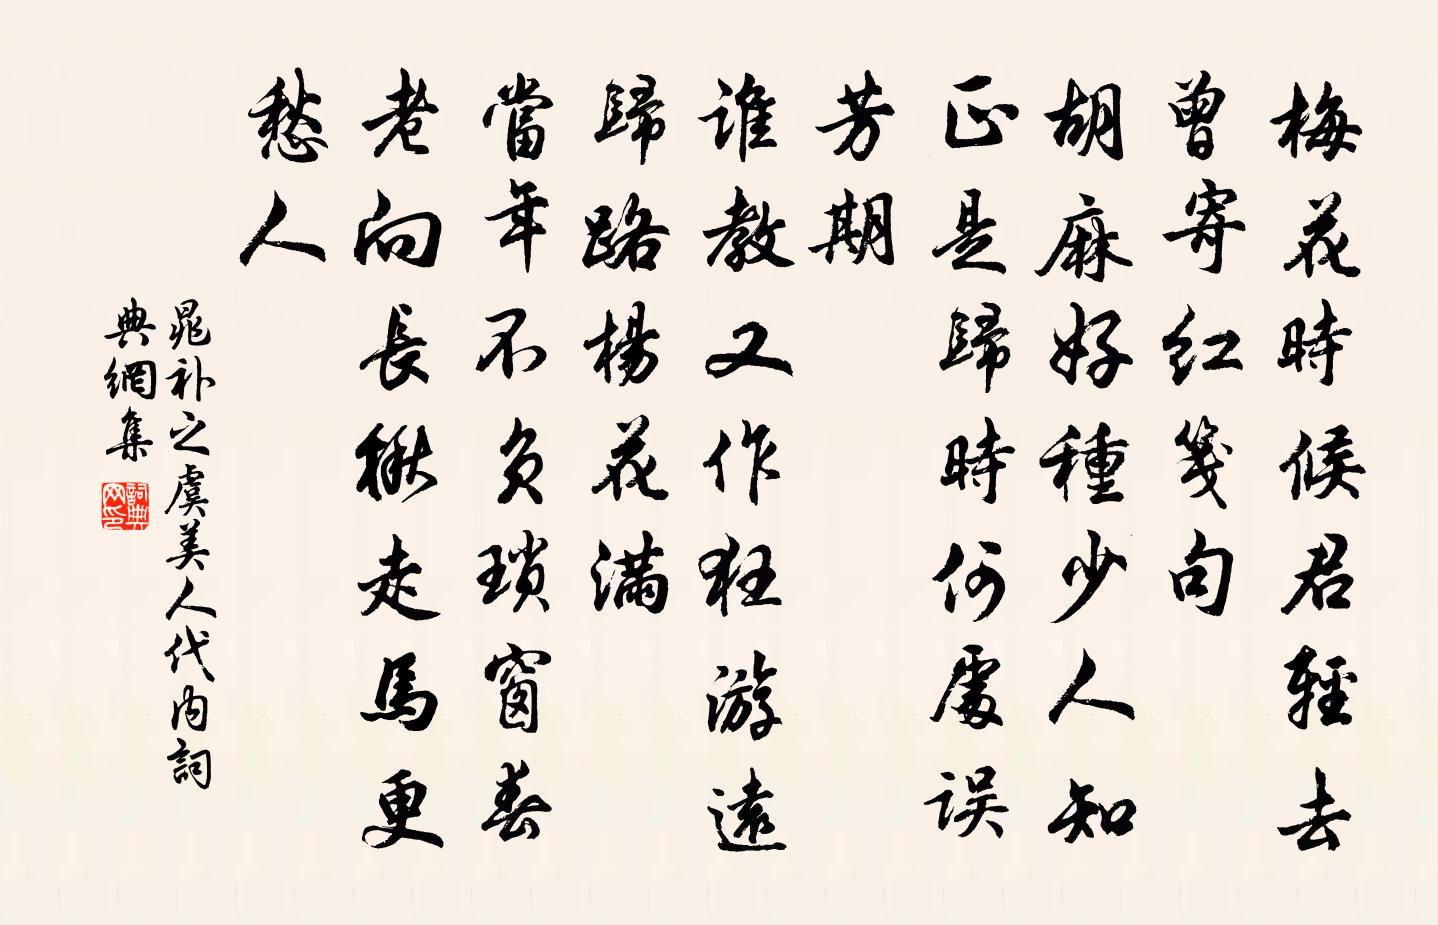 梅花時候君輕去
曾寄红箋句
胡麻好種少人知
正是歸時何處误
芳期
谁教又作狂游遠
歸路楊花满
當年不负瑣窗春
老向長楸走馬更
愁人
晁补之虞美人代内詞
典網集
詞典网印